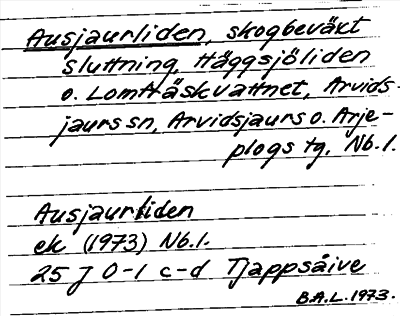 Ausjaurliden, skogbeväxt
sluttning, Häggsjöliden
o. Lomträskvattnet, Arvids-
jaurs sn, Arvidsjaurs o. Arje-
plogs tg, Nb.l.
Ausjaurliden
ek (1973) Nb.l.
25 J 0-1 c-d Tjappsåive
B.A.L. 1973.